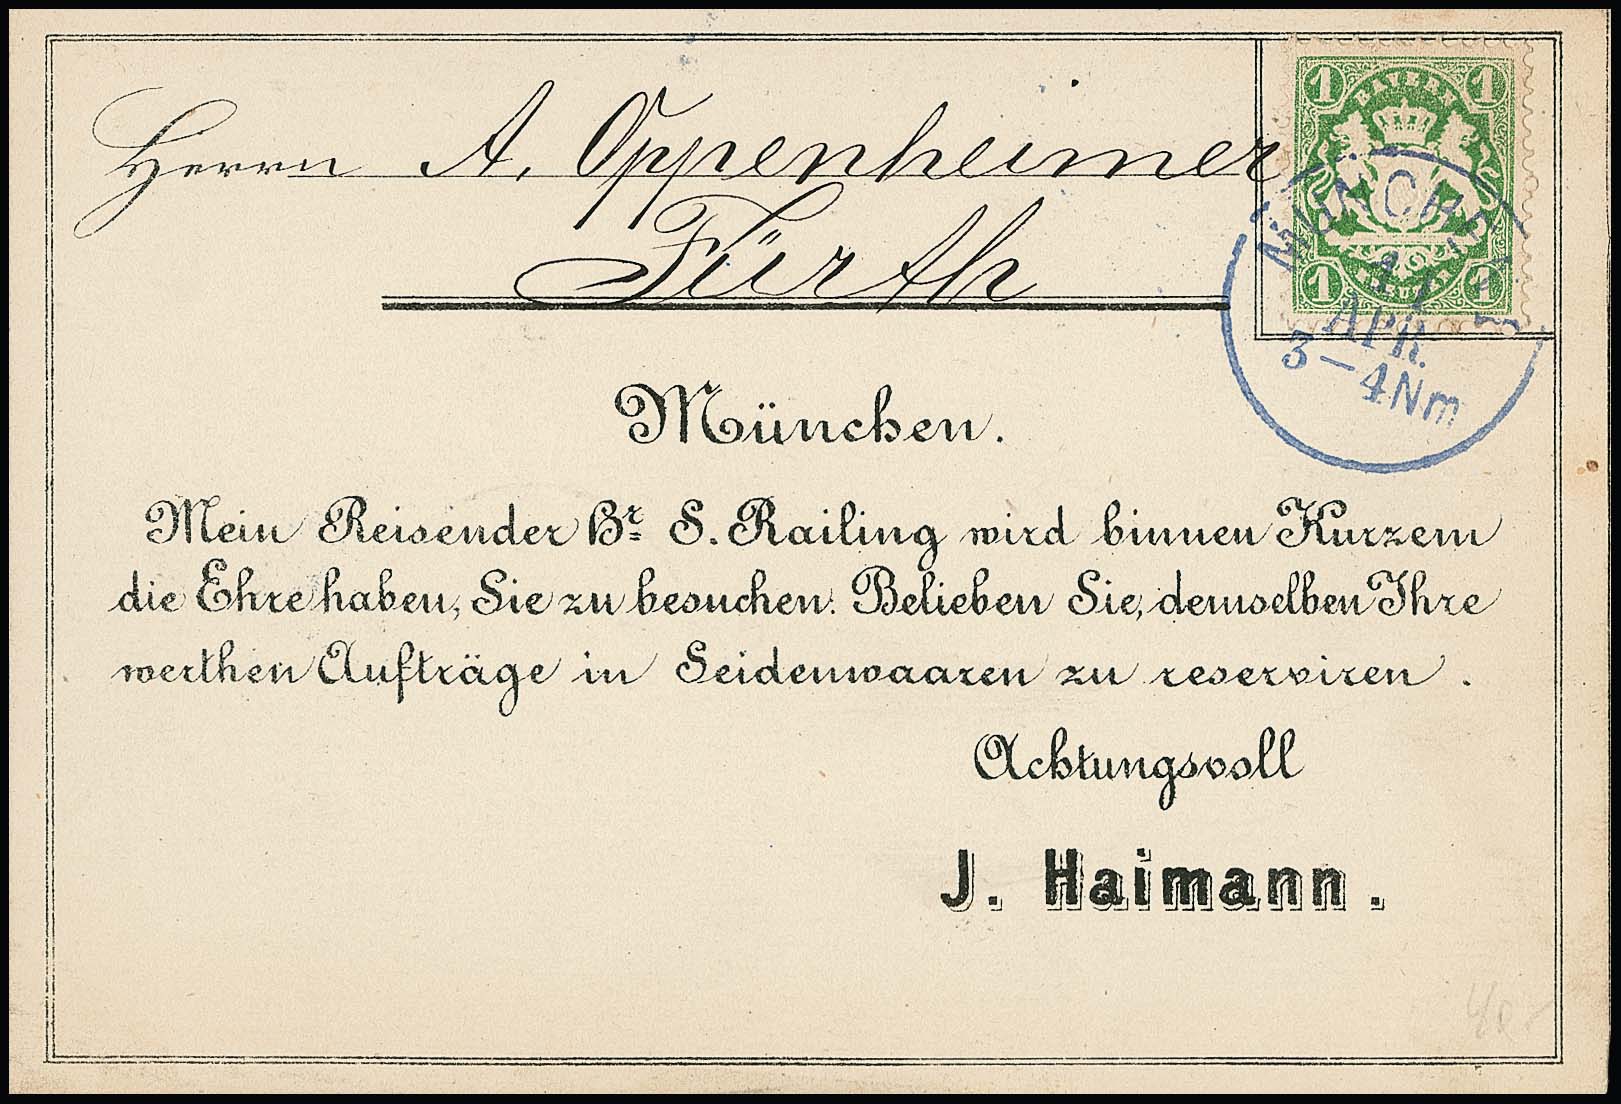 Herrn A. Oppenheimer
Fürth
1 BAYERN 1
1 KREUZER 1
MÜNCHEN
APR.
3—4 Nm
München.
Mein Reisender Hr. S. Railing wird binnen Kurzem
die Ehre haben, Sie zu besuchen. Belieben Sie, demselben Ihre
werthen Aufträge in Seidenwaaren zu reserviren.
Achtungsvoll
J. Haimann.